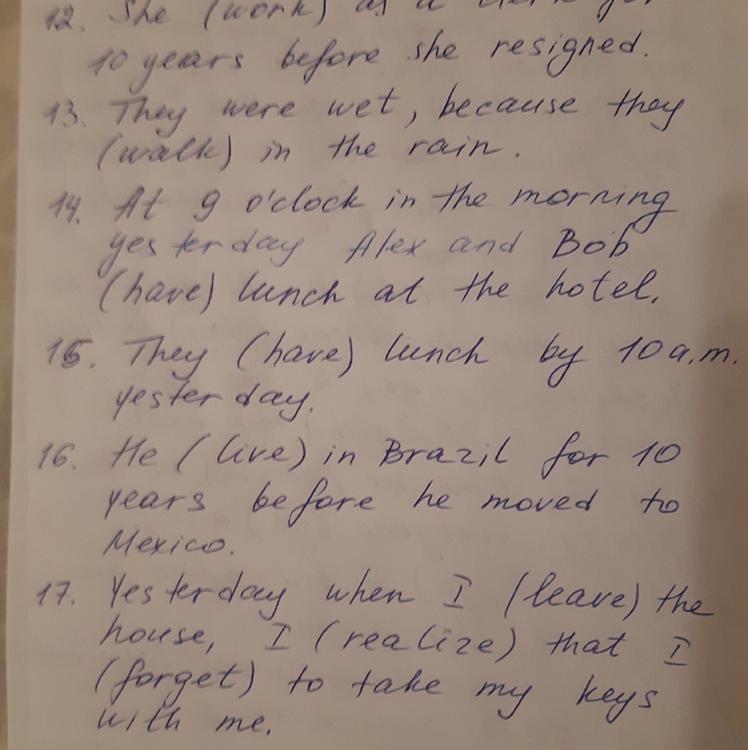 12. She (work) as a clerk for
10 years before she resigned.
13. They were wet, because they
(walk) in the rain.
14. At 9 o'clock in the morning
yesterday Alex and Bob
(have) lunch at the hotel.
15. They (have) lunch by 10 a.m.
yesterday.
16. He (live) in Brazil for 10
years before he moved to
Mexico.
17. Yesterday when I (leave) the
house, I (realize) that I
(forget) to take my keys
with me.